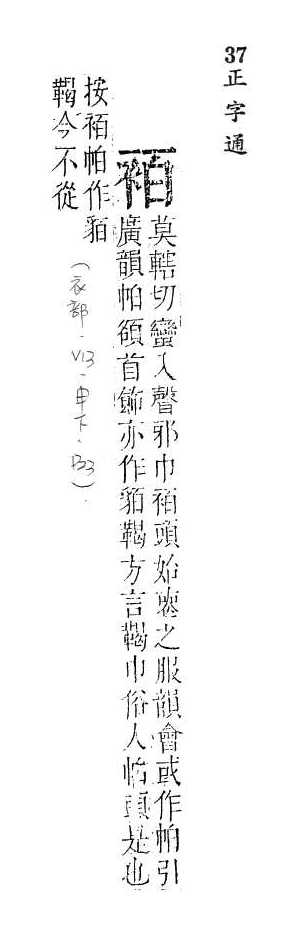 37正字通
袹
莫轄切蠻入聲邪巾袹頭始喪之服韻會或作帕引
廣韻帕頟首飾亦作貊鞨方言鞨巾俗人帕頭是也
按袹帕作貊
鞨今不從
(衣部.V13.申下.133).